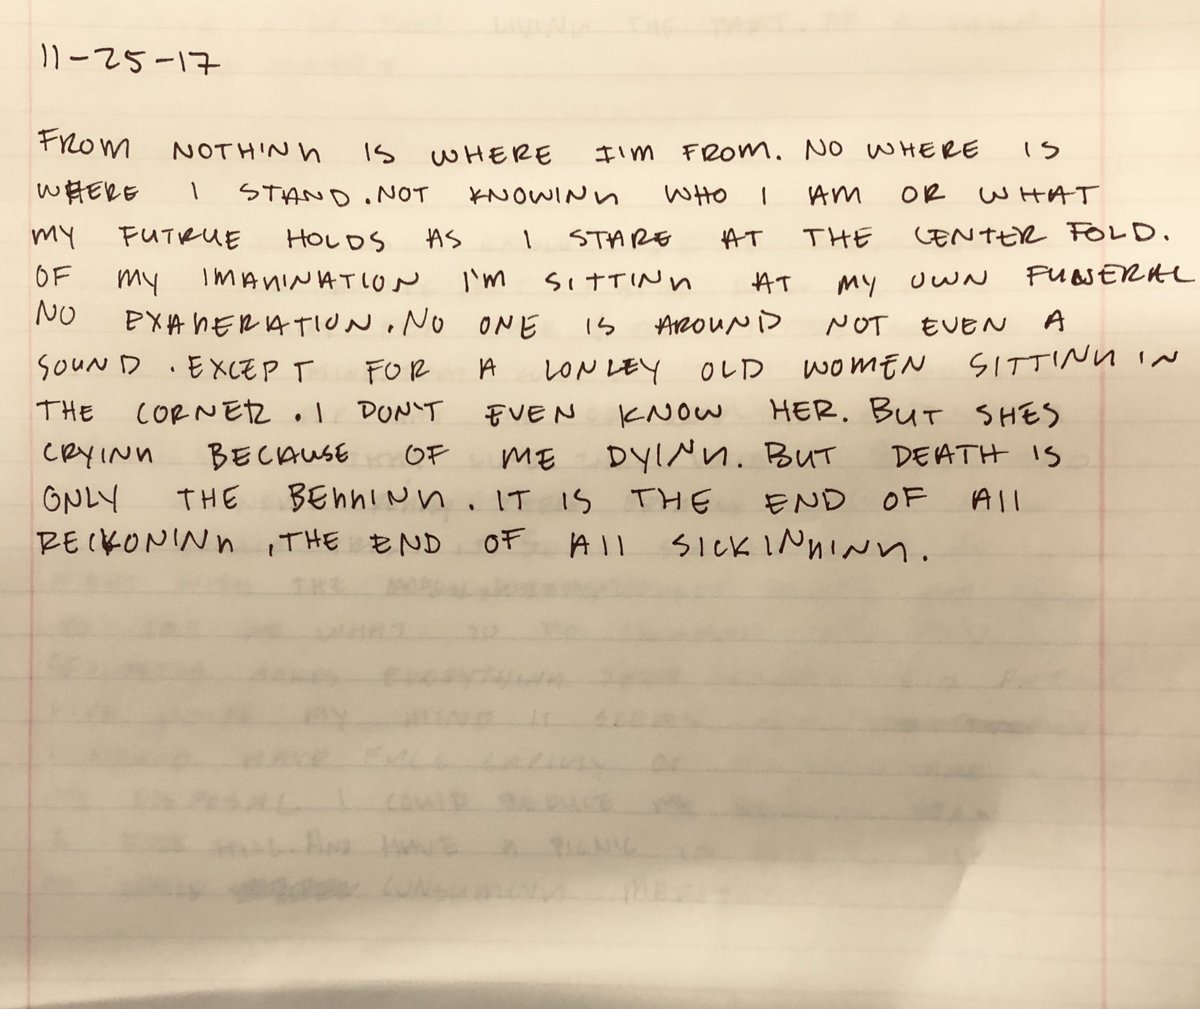 11-25-17
FROM NOTHING IS WHERE I'M FROM. NO WHERE IS
WHERE I STAND. NOT KNOWING WHO I AM OR WHAT
MY FUTRUE HOLDS AS I STARE AT THE CENTER FOLD.
OF MY IMAGINATION I'M SITTING AT MY OWN FUNERAL
NO EXAGERATION. NO ONE IS AROUND NOT EVEN A
SOUND. EXCEPT FOR A LONLEY OLD WOMEN SITTING IN
THE CORNER. I DON'T EVEN KNOW HER. BUT SHES
CRYING BECAUSE OF ME DYING. BUT DEATH IS
ONLY THE BEGGING. IT IS THE END OF All
RECKONING, THE END OF All SICKINGING.